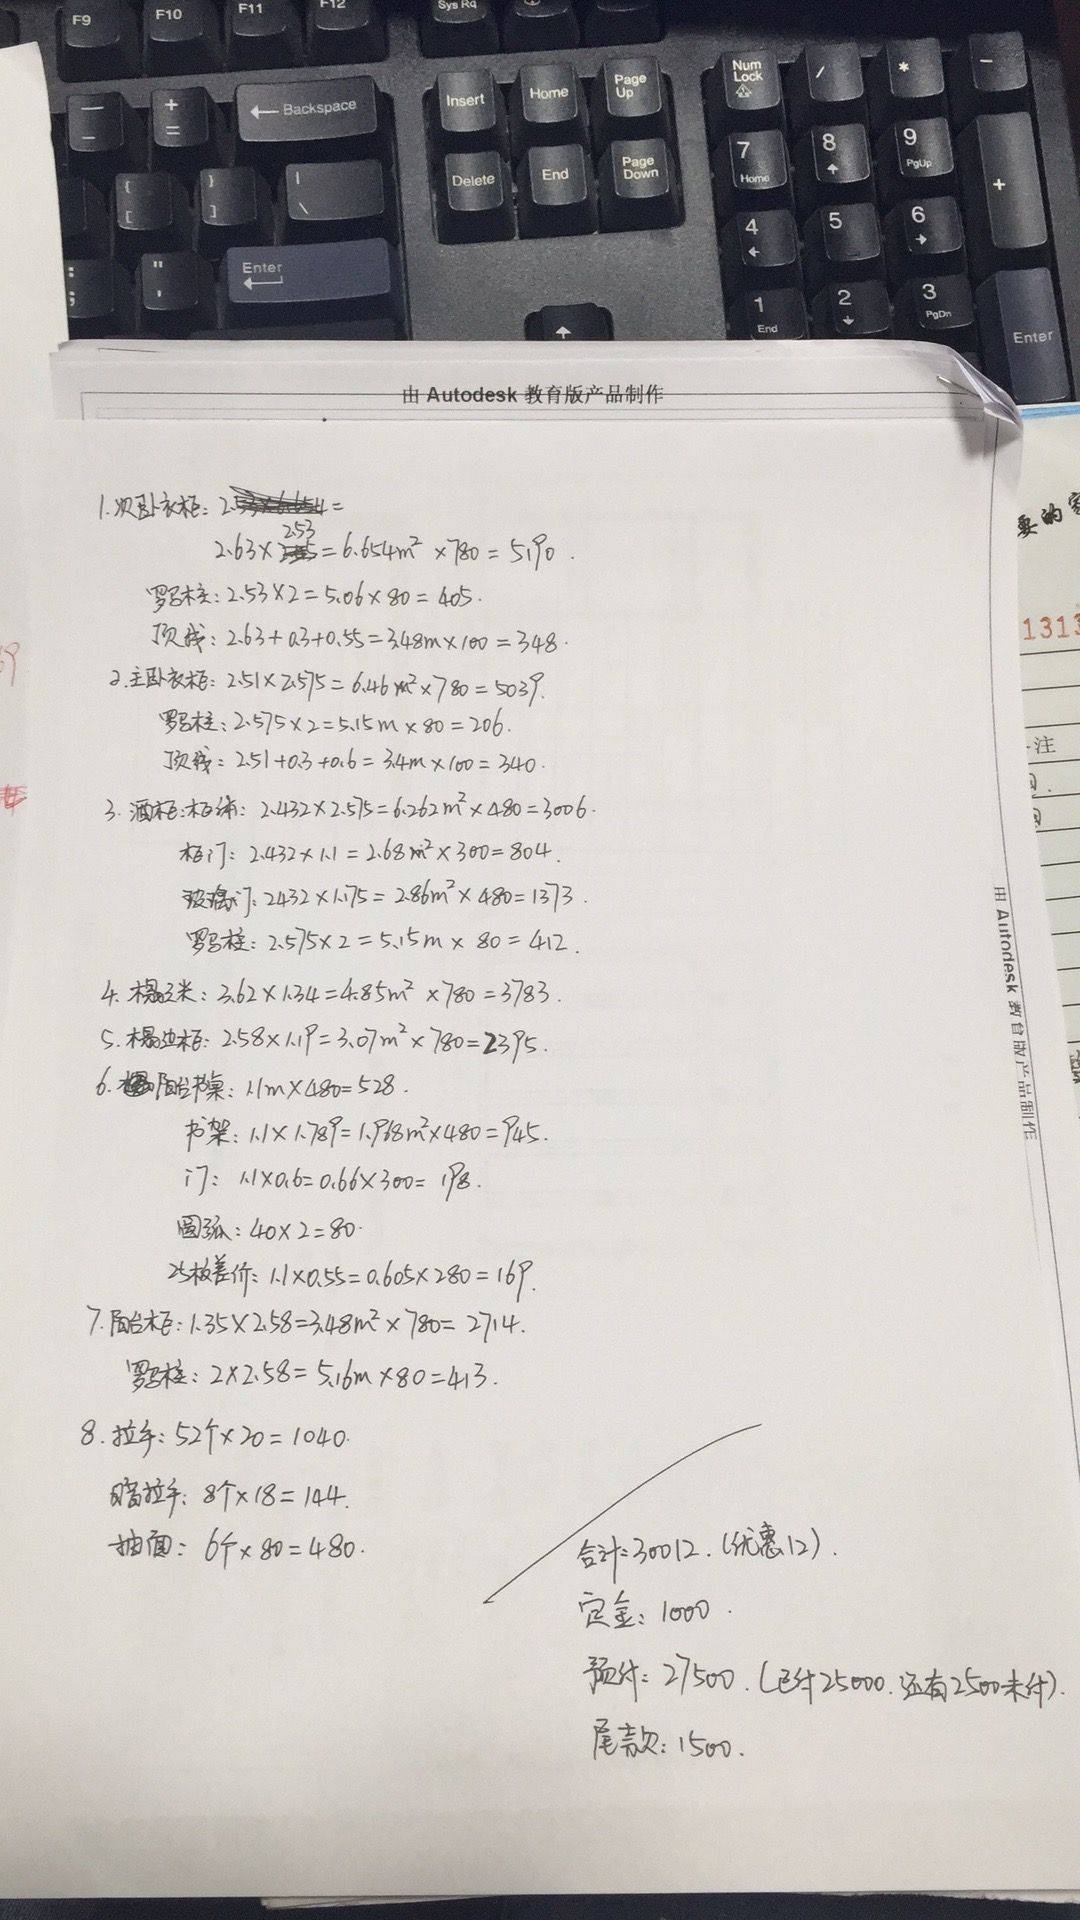 F9 F10 F11 F12 Sys Rq
— _ + = ← Backspace Insert Home Page Up Num Lock / * -
{ [ } ] | \ Delete End Page Down 7 Home 8 9 PgUp +
: ; " ' Enter 4 5 6
1 End 2 3 PgDn Enter
由 Autodesk 教育版产品制作
1.次卧衣柜: 2.53×6.654=
2.53
2.63× =6.654m² ×780=5190.
罗马柱: 2.53×2=5.06×80=405.
顶线: 2.63+0.3+0.55=3.48m×100=348.
2.主卧衣柜: 2.51×2.575=6.46m²×780=5039.
罗马柱: 2.575×2=5.15m×80=206.
顶线: 2.51+0.3+0.6=3.4m×100=340.
3.酒柜:柜体: 2.432×2.575=6.262m²×480=3006.
柜门: 2.432×1.1=2.68m²×300=804.
玻璃门: 2.432×1.175=2.86m²×480=1373.
罗马柱: 2.575×2=5.15m×80=412.
4.榻榻米: 3.62×1.34=4.85m²×780=3783.
5.榻边柜: 2.58×1.19=3.07m²×780=2395.
6.阳台书桌: 1.1m×480=528.
书架: 1.1×1.789=1.968m²×480=945.
门: 1.1×0.6=0.66×300=198.
圆弧: 40×2=80.
25板差价: 1.1×0.55=0.605×280=169.
7.阳台柜: 1.35×2.58=3.48m²×780=2714.
罗马柱: 2×2.58=5.16m×80=413.
8.拉手: 52个×20=1040.
暗拉手: 8个×18=144.
抽面: 6个×80=480.
合计:30012.(优惠12).
定金: 1000.
预付: 27500.(已付25000.还有2500未付).
尾款: 1500.
由 Autodesk 教育版产品制作
要的
1313
注